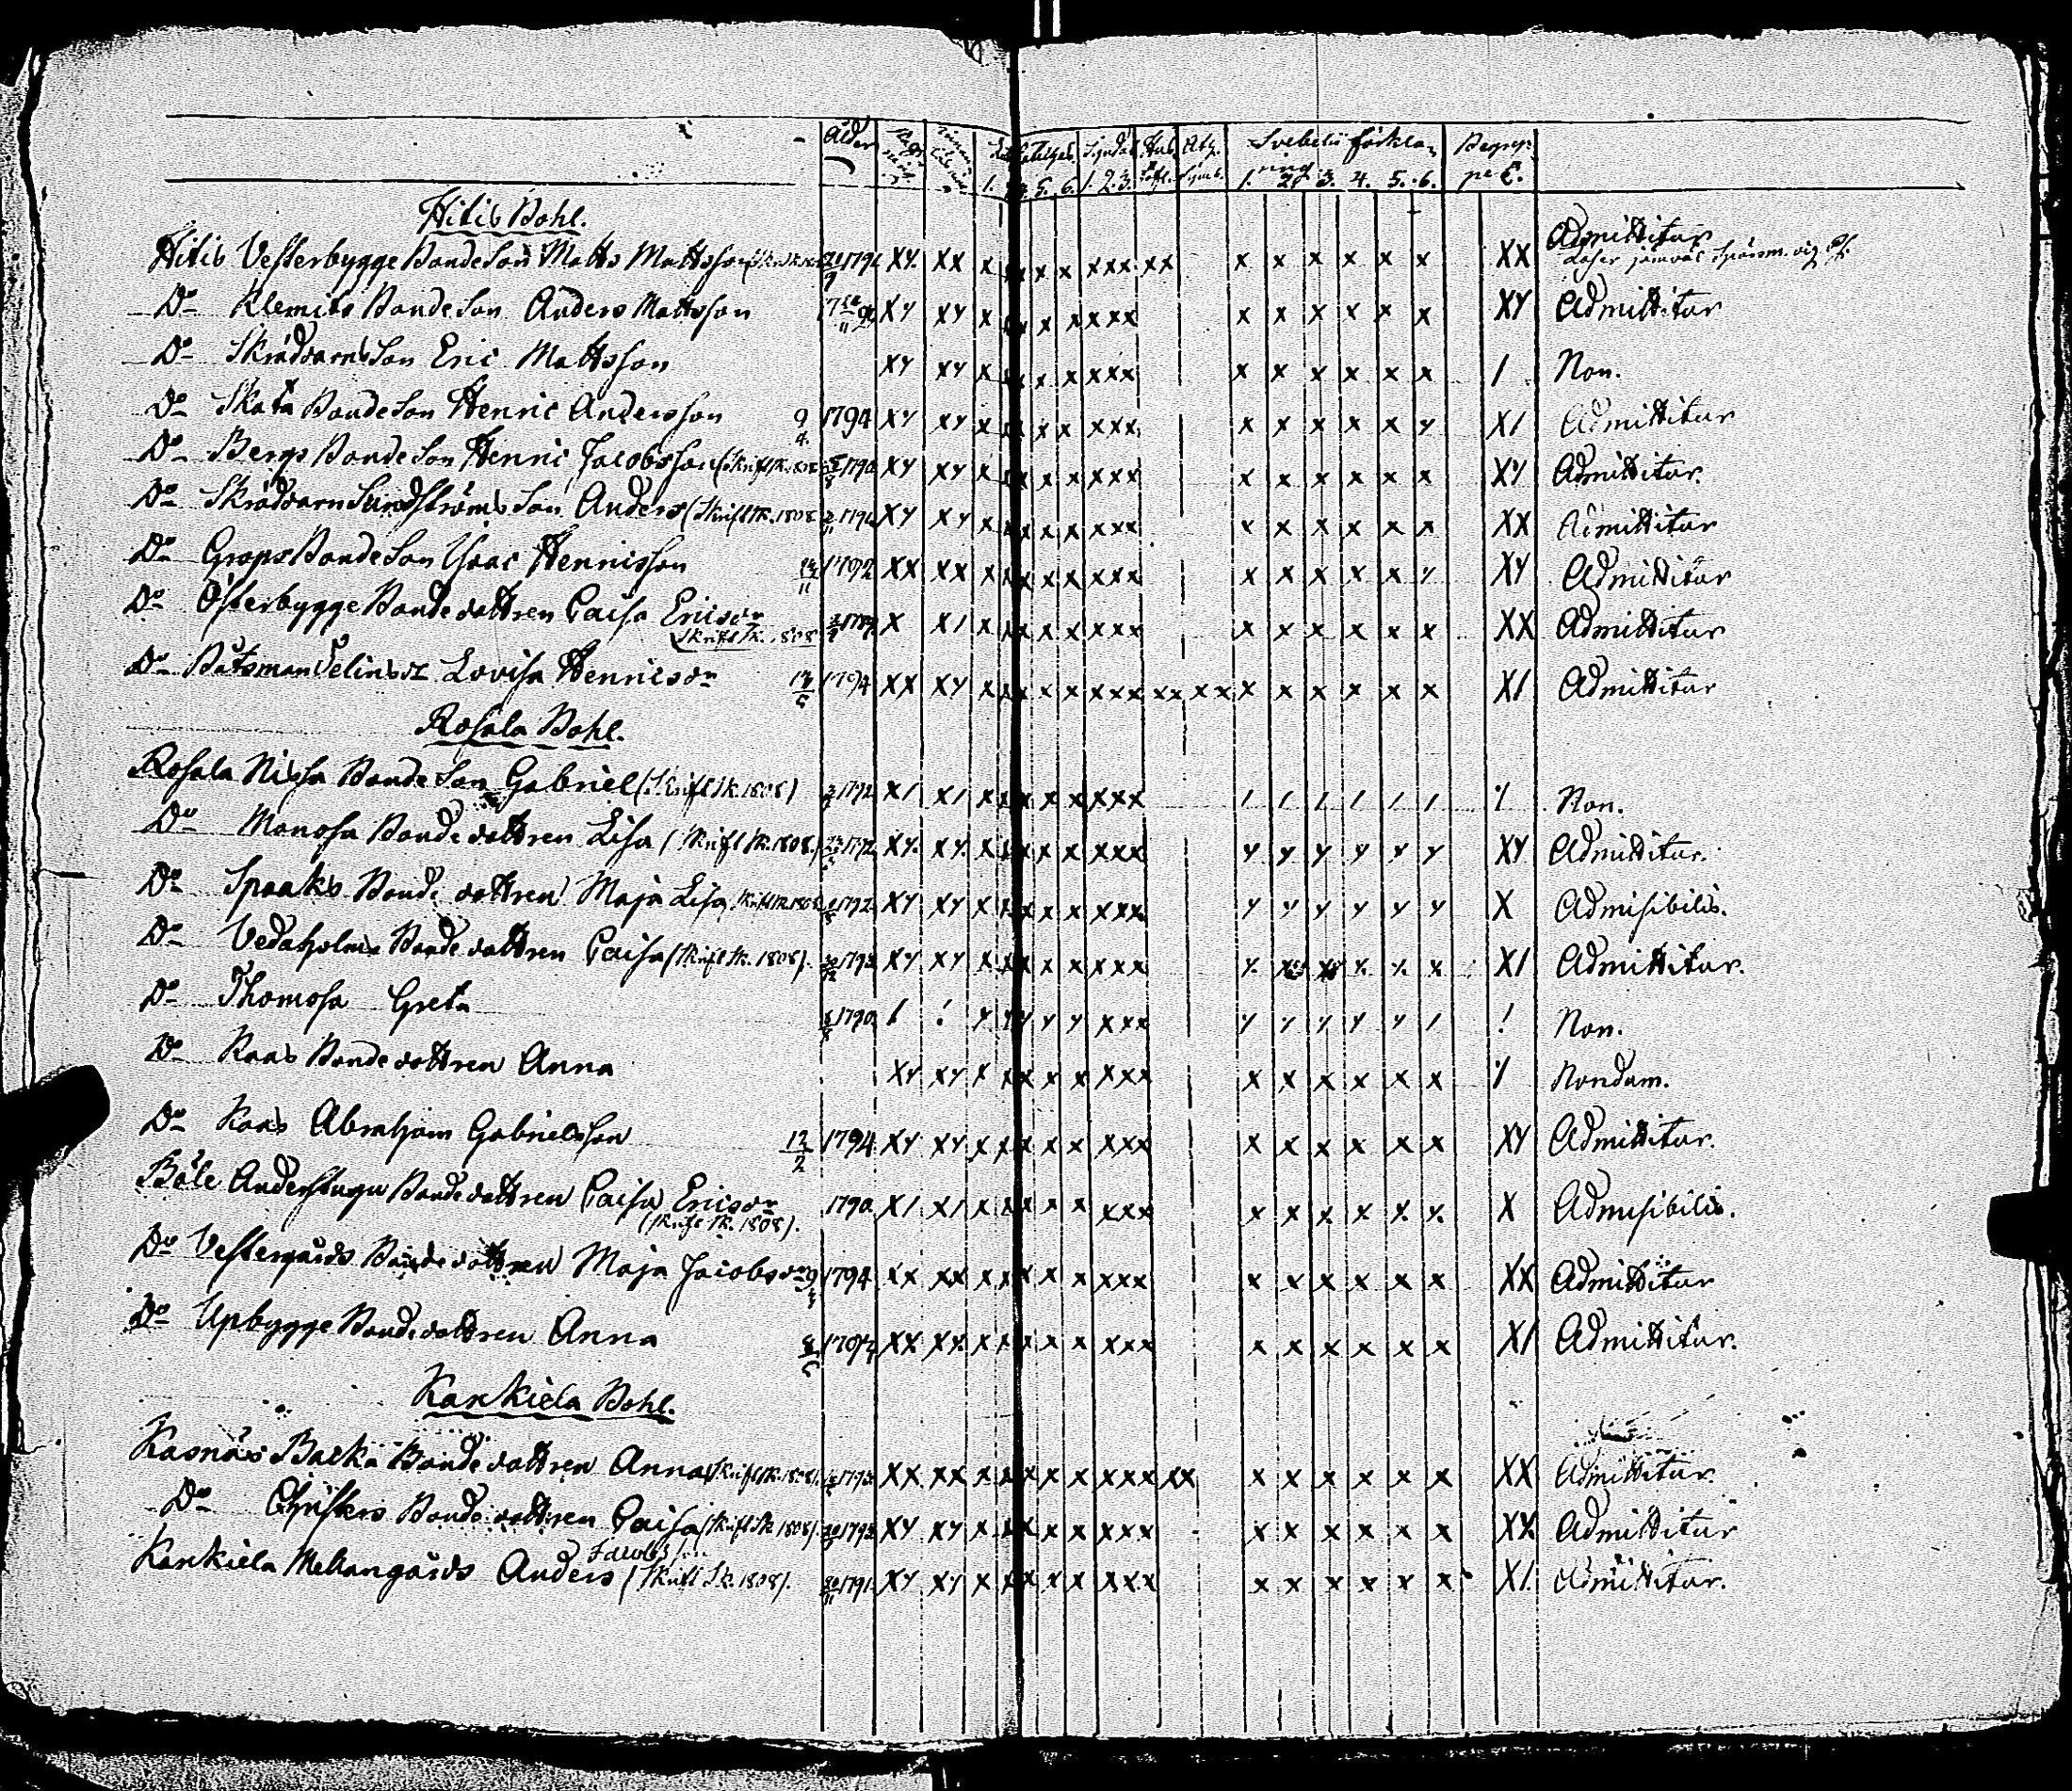 Ålder Svebelii förkla-
1. 5. 6. 1. 2. 3. Symb. 1. ring 2. 3. 4. 5. 6.
Hitis Bohl.
Hitis Vesterbygge Bonde Son Matts Mattsson 1791 XY. XX x x x x xxx xx x x x x x x XX Admittitur
Do Klemits Bonde Son Anders Mattsson XY XY x x x x xxx x x x x x x XY Admittitur
Do Skräddarns Son Eric Mattsson XY XY x x x x xxx x x x x x x / Non.
Do Skata Bonde Son Henric Andersson 9/4 1794 XY XY x x x x xxx x x x x x y X/ Admittitur
Do Bergs Bonde Son Henric Jacobsson (Skrift Sk. 1808 1790 XY XY x x x x xxx x x x x x x XY Admittitur.
Do Skräddarn Sundströms Son Anders (Skrift Sk. 1808 XY XY x x x x xxx x x x x x x XX Admittitur
Do Grops Bonde Son Isaac Henricsson 1792 XX XX x x x x xxx x x x x x y XY Admittitur
Do Österbygge Bonde dottren Caisa Ericsdr X X/ x x x x xxx x x x x x x XX Admittitur
(Skrift Sk. 1808
Do Båtsman Lovisa Henricsdr 1794 XX XY x x x x xxx xx xx x x x x x x X/ Admittitur
Rosala Bohl.
Rosala Nissa Bonde Son Gabriel (Skrift Sk. 1808) 1792 X/ X/ x x x x xxx / / / / / / / Non.
Do Monosa Bonde dottren Lisa (Skrift Sk. 1808.) 1792 XY. XY. x x x x xxx y y y y y y XY Admittitur.
Do Spaaks Bonde dottren Maja Lisa Skrift Sk. 1808 1792 XY XY x x x x xxx y y y y y y X Admisibilis.
Do Vedaholms Bonde dottren Caisa (Skrift Sk. 1808). 1793 XY XY x x x x xxx X/ Admittitur.
Do Thomosa Greta 1790 / / x y y y xxx y y y y y / / Non.
Do Kaas Bonde dottren Anna XY XY x x x x xxx x x x x x x / Nondum.
Do Kaas Abraham Gabrielsson 12/2 1794 XY XY x x x x xxx x x x x x x XY Admittitur.
Böle Anderstugu Bonde dottren Caisa Ericsdr 1790 X/ X/ x x x x xxx x x x x x x X Admisibilis.
(Skrift Sk. 1808).
Do Vestergårds Bonde dottren Maja Jacobsdr 1794 XX XX x x x x xxx x x x x x x XX Admittitur
Do Upbygge Bonde dottren Anna XX XX x x x x xxx x x x x x x X/ Admittitur.
Kankiela Bohl.
Kasnäs Backa Bonde dottren Anna (Skrift Sk. 1808). XX XX x x x x xxx xx x x x x x x XX Admittitur
Do Christers Bonde dottren Caisa (Skrift Sk 1808). 1793 XY XY x x x x xxx x x x x x x XX Admittitur
Jacobsson
Kankiela Mellangårds Anders (Skrift Sk. 1808). 1791 XY XY x x x x xxx x x x x x x X/ Admittitur.